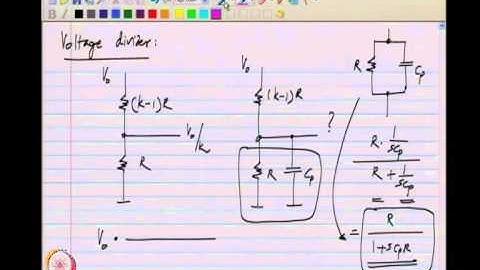 Voltage divider:
V₀
(k-1)R
V₀/k
R
V₀
(k-1)R
?
R
Cp
R
Cp
R · 1/sCp
R + 1/sCp
= R
1+sCpR
V₀ ·